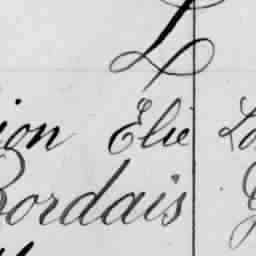 L
ion Elie
Bordais